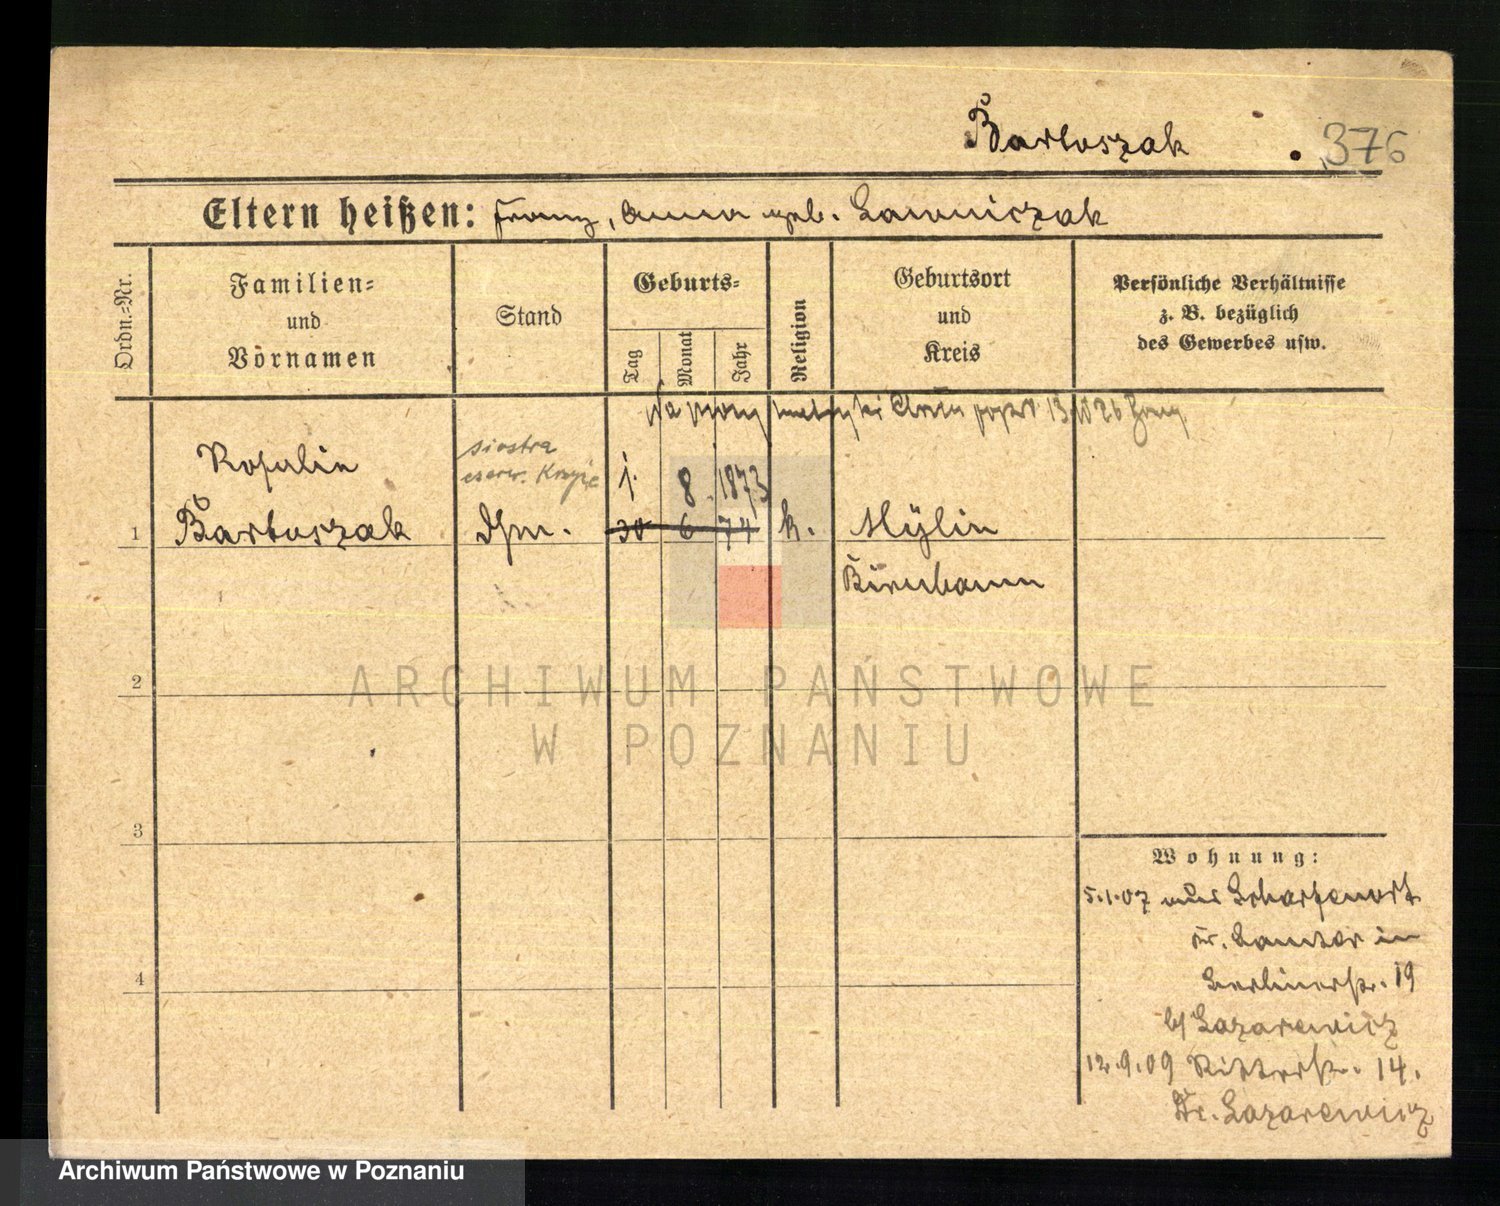 Bartoszak . 376
Eltern heißen: Franz, Anna geb. Lawniczak
Ordn.-Nr.
Familien-
und
Vornamen
Stand
Geburts-
Tag
Monat
Jahr
Religion
Geburtsort
und
Kreis
Persönliche Verhältnisse
z. B. bezüglich
des Gewerbes usw.
Na 13 10 26
siostra
czerw. Krzyża
Rosalie
1. 8. 1873
1 Bartoszak 30 6 74 k. Mylin
Birnbaum
2
3
4
Wohnung:
5.1.07 aus Scharfenort
Kr. Samter in
Berlinerstr. 19
b/ Lazarewicz
12.9.09 Ritterstr. 14.
Fr. Lazarewicz
ARCHIWUM PAŃSTWOWE
W POZNANIU
Archiwum Państwowe w Poznaniu